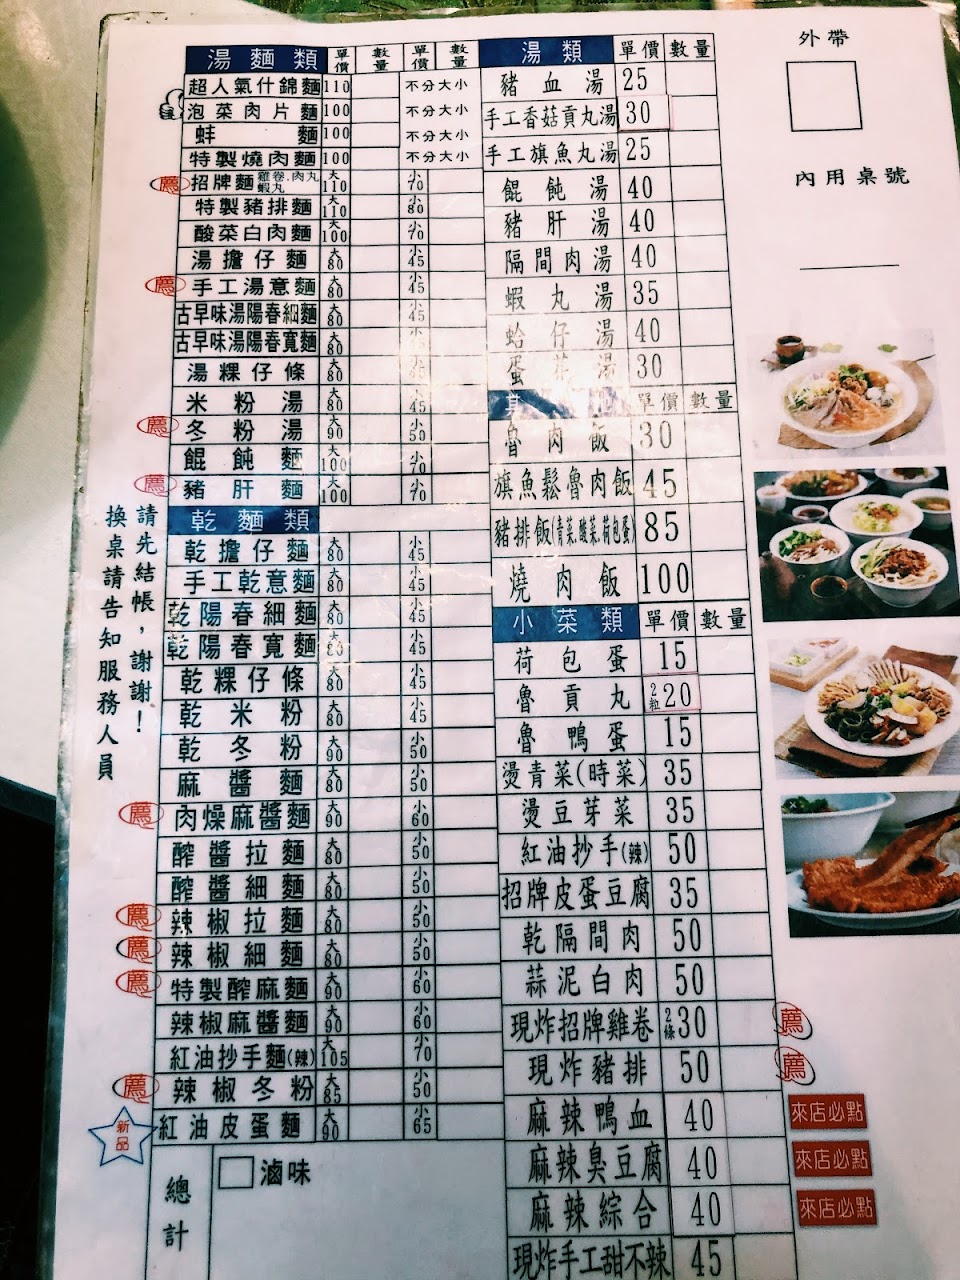 湯麵類 單價 數量 單價 數量
超人氣什錦麵 110 不分大小
泡菜肉片麵 100 不分大小
蚌麵 100 不分大小
特製燒肉麵 100 不分大小
薦 招牌麵 雞卷.肉丸 蝦丸 大110 小70
特製豬排麵 大110 小80
酸菜白肉麵 大100 小70
湯擔仔麵 大80 小45
薦 手工湯意麵 大80 小45
古早味湯陽春細麵 大80 小45
古早味湯陽春寬麵 大80
湯粿仔條 大80
米粉湯 大80 小45
薦 冬粉湯 大90 小50
餛飩麵 大100 小70
薦 豬肝麵 大100 小70
乾麵類
乾擔仔麵 大80 小45
手工乾意麵 大80 小45
乾陽春細麵 大80 小45
乾陽春寬麵 大80 小45
乾粿仔條 大80 小45
乾米粉 大80 小45
乾冬粉 大90 小50
麻醬麵 大80 小50
薦 肉燥麻醬麵 大90 小60
醡醬拉麵 大80 小50
醡醬細麵 大80 小50
薦 辣椒拉麵 大80 小50
薦 辣椒細麵 大80 小50
薦 特製醡麻麵 大90 小60
辣椒麻醬麵 大90 小60
紅油抄手麵(辣) 大105 小70
薦 辣椒冬粉 大85 小50
新品 紅油皮蛋麵 大90 小65
總計
滷味
湯類 單價 數量
豬血湯 25
手工香菇貢丸湯 30
手工旗魚丸湯 25
餛飩湯 40
豬肝湯 40
隔間肉湯 40
蝦丸湯 35
蛤仔湯 40
蛋湯 30
其 單價 數量
魯肉飯 30
旗魚鬆魯肉飯 45
豬排飯(青菜.酸菜.荷包蛋) 85
燒肉飯 100
小菜類 單價 數量
荷包蛋 15
魯貢丸 2粒20
魯鴨蛋 15
燙青菜(時菜) 35
燙豆芽菜 35
紅油抄手(辣) 50
招牌皮蛋豆腐 35
乾隔間肉 50
蒜泥白肉 50
現炸招牌雞卷 2條30 薦
現炸豬排 50 薦
麻辣鴨血 40 來店必點
麻辣臭豆腐 40 來店必點
麻辣綜合 40 來店必點
現炸手工甜不辣 45
外帶
內用桌號
請先結帳，謝謝！
換桌請告知服務人員